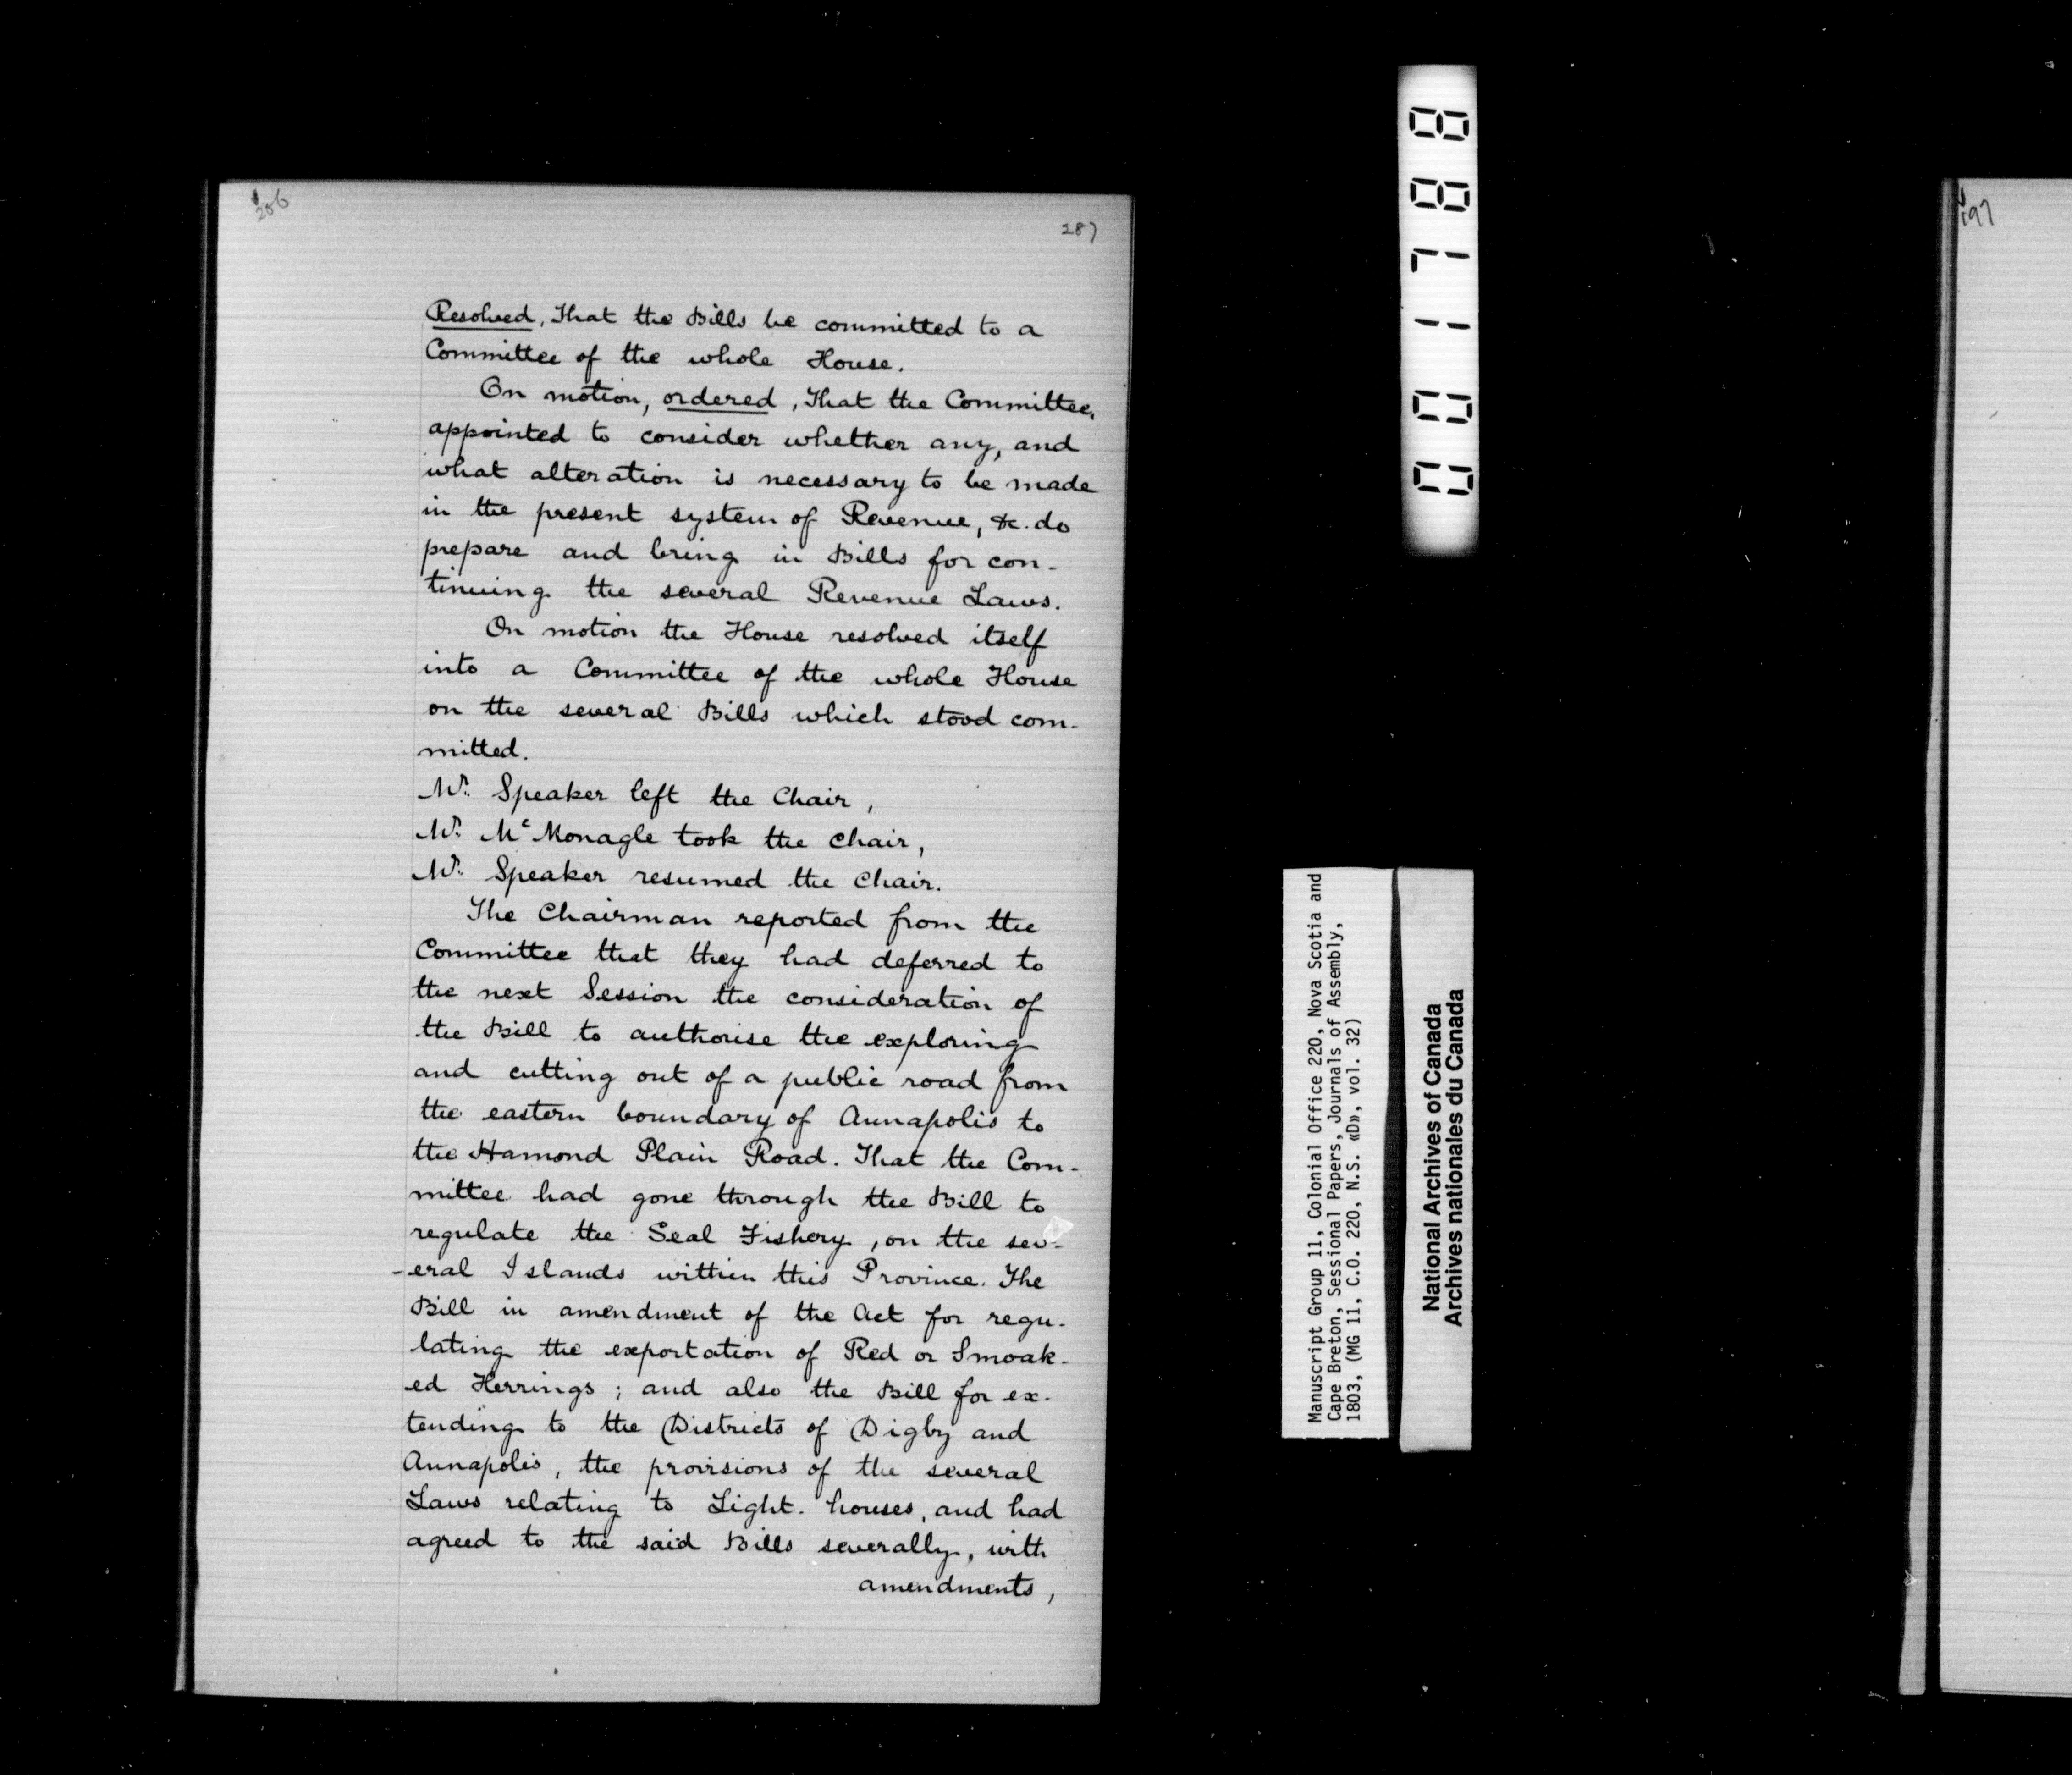 287
Resolved, That the Bills be committed to a
Committee of the whole House.
On motion, ordered, That the Committee,
appointed to consider whether any, and
what alteration is necessary to be made
in the present system of Revenue, &c. do
prepare and bring in Bills for con-
tinuing the several Revenue Laws.
On motion the House resolved itself
into a Committee of the whole House
on the several Bills which stood com-
mitted.
Mr. Speaker left the Chair,
Mr. McMonagle took the Chair,
Mr. Speaker resumed the Chair.
The Chairman reported from the
Committee that they had deferred to
the next Session the consideration of
the Bill to authorise the exploring
and cutting out of a public road from
the eastern boundary of Annapolis to
the Hamond Plain Road. That the Com-
mittee had gone through the Bill to
regulate the Seal Fishery, on the sev-
-eral Islands within this Province. The
Bill in amendment of the Act for regu-
lating the exportation of Red or Smoak-
ed Herrings; and also the Bill for ex-
tending to the Districts of Digby and
Annapolis, the provisions of the several
Laws relating to Light-houses, and had
agreed to the said Bills severally, with
amendments,
Manuscript Group 11, Colonial Office 220, Nova Scotia and
Cape Breton, Sessional Papers, Journals of Assembly,
1803, (MG 11, C.O. 220, N.S. «D», vol. 32)
National Archives of Canada
Archives nationales du Canada